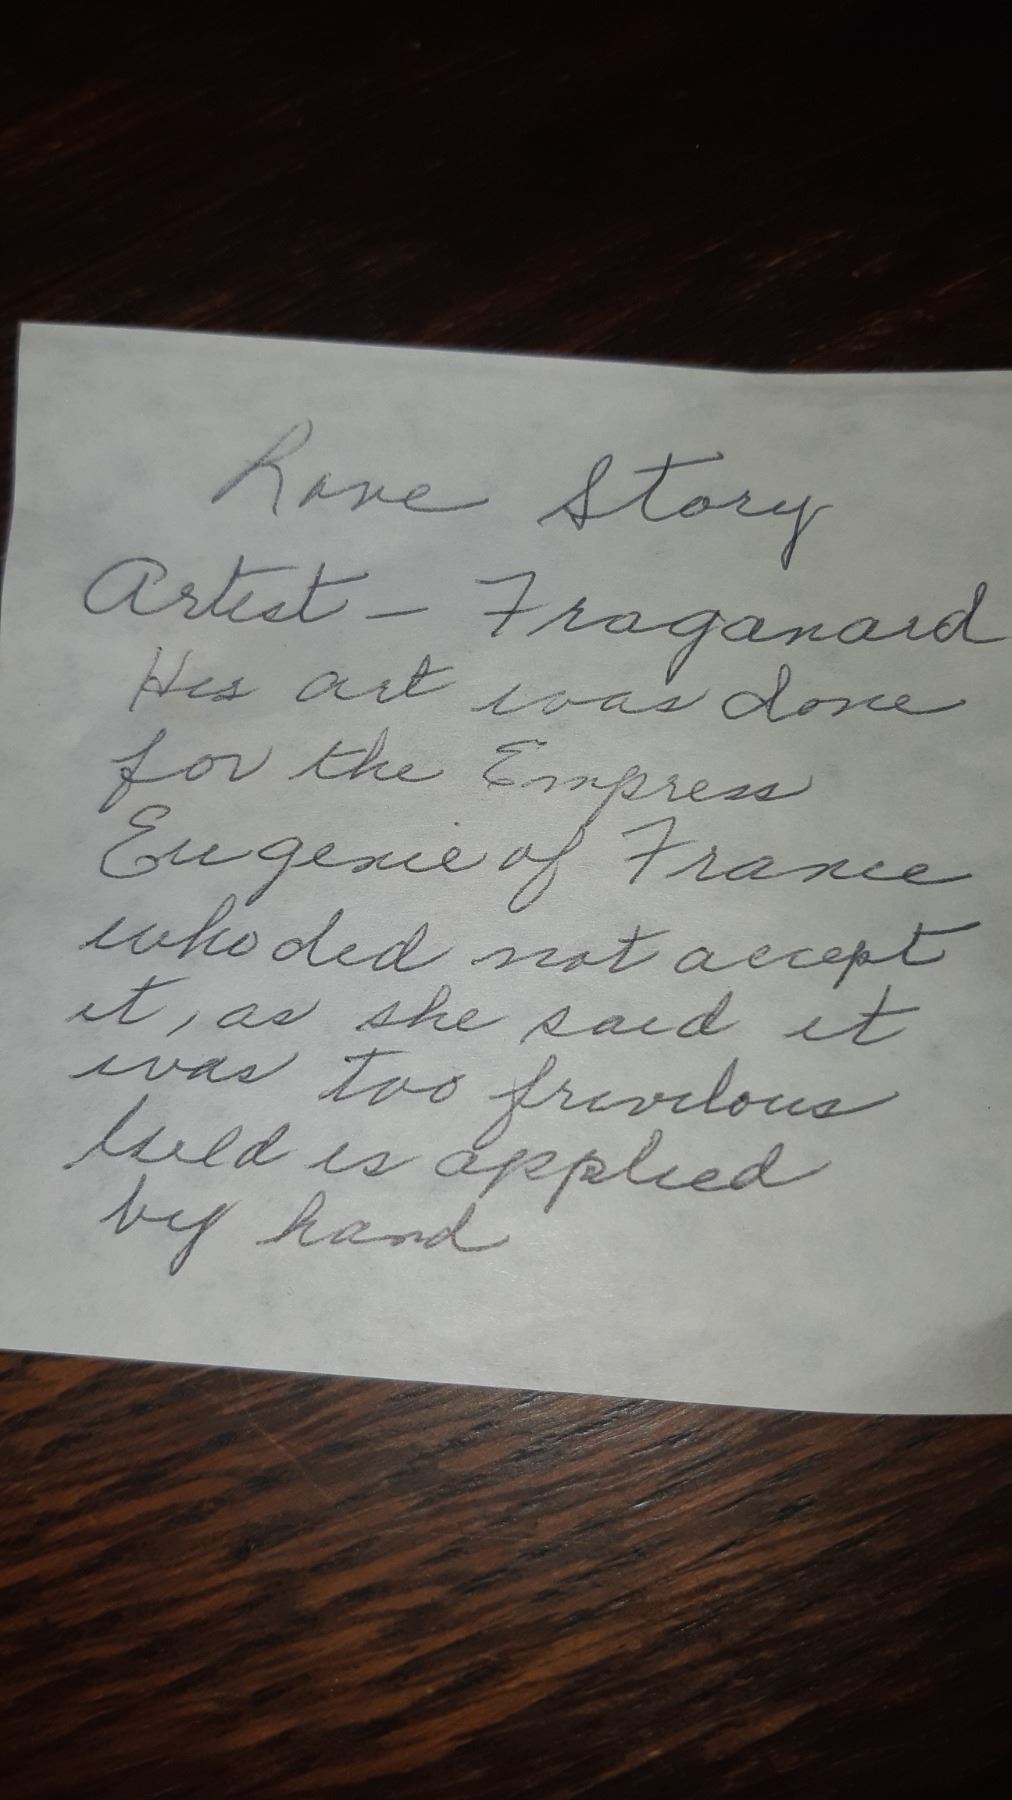 Love Story
Artist - Fraganard
His art was done
for the Empress
Eugenie of France
who did not accept
it, as she said it
was too frivilous
Guld is applied
by hand